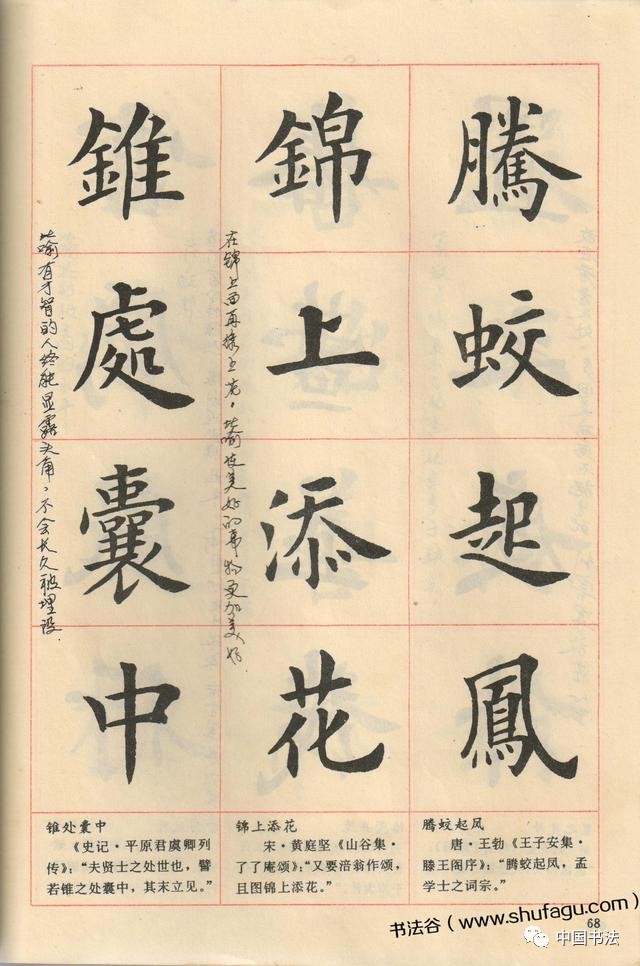 騰蛟起鳳
錦上添花
在锦上面再添上花。比喻使美好的事物更加美好.
錐處囊中
比喻有才智的人终能显露头角,不会长久被埋没.
锥处囊中
《史记·平原君虞卿列
传》:“夫贤士之处世也,譬
若锥之处囊中,其末立见。”
锦上添花
宋·黄庭坚《山谷集·
了了庵颂》:“又要涪翁作颂,
且图锦上添花。”
腾蛟起凤
唐·王勃《王子安集·
滕王阁序》:“腾蛟起凤,孟
学士之词宗。”
68
书法谷(www.shufagu.com)
中国书法